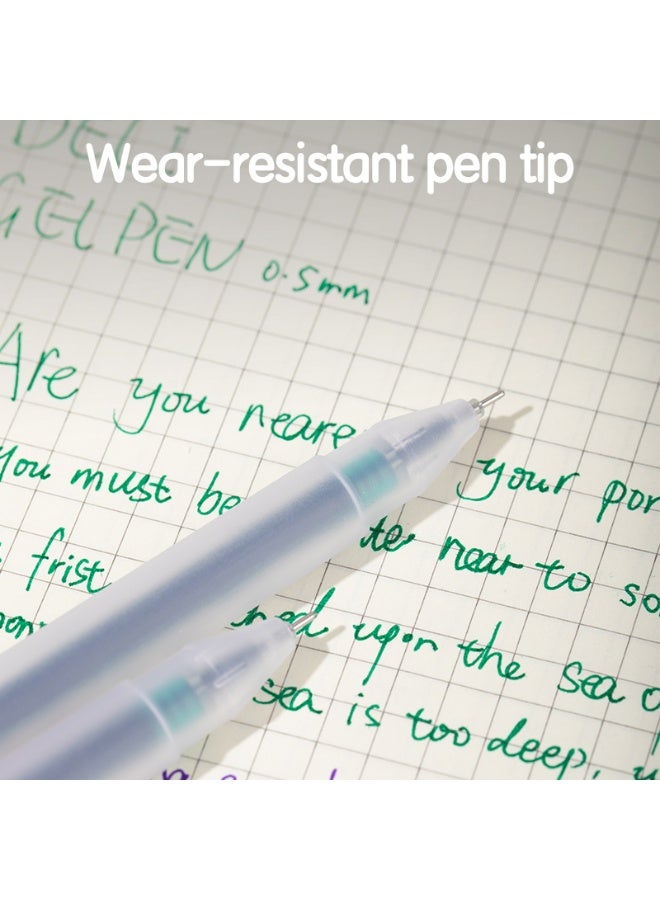 Wear-resistant pen tip
DELI
GEL PEN 0.5mm
Are you neare your por
You must be te near to so
frist ned upon the sea
sea is too deep,